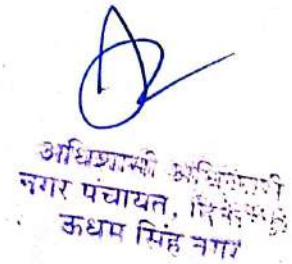 अधिशासी अधिकारी
नगर पंचायत,
ऊधम सिंह नगर